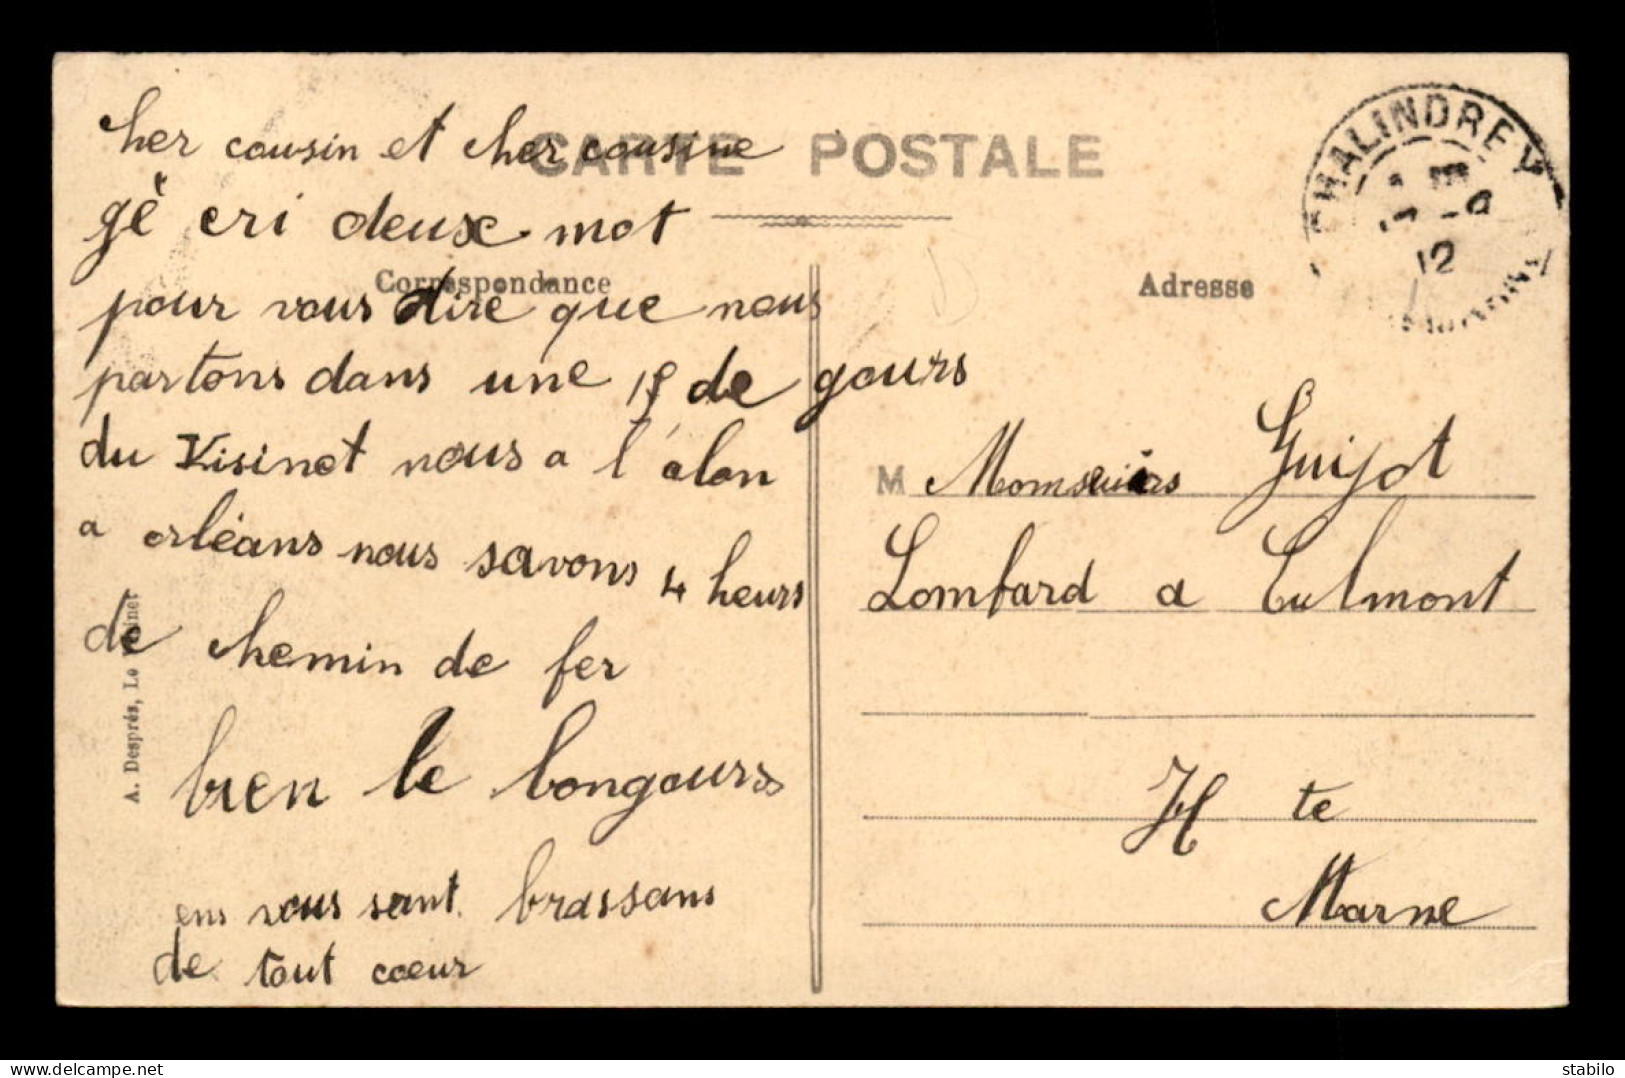 CARTE POSTALE
Correspondance
Adresse
CHALINDREY
12
cher cousin et cher cousine
gé cri deuse mot
pour vous dire que nous
partons dans une 15 de gours
du Visinet nous a l'alon
a orléans nous savons 4 heurs
de chemin de fer
bien le bongours
ens vous sant brassans
de tout coeur
M Guijot
Lombard a Culmont
H te
Marne
A. Després, Le Vésinet
delcampe.net
stabilo